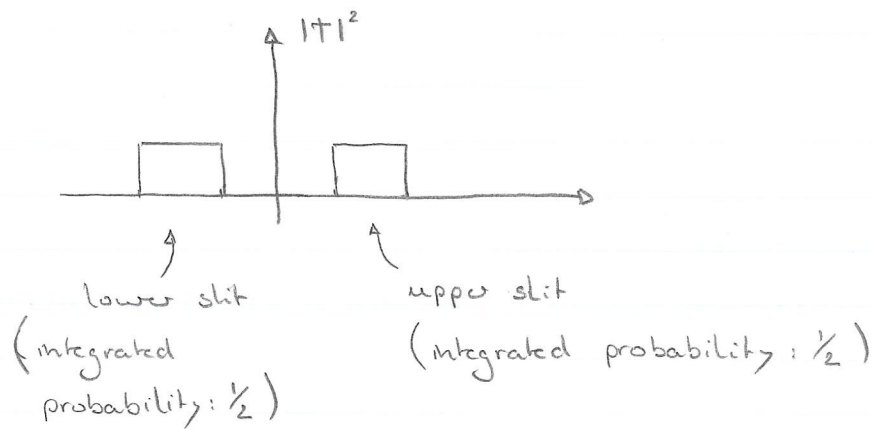 |ψ|²
lower slit
(integrated
probability: ½)
upper slit
(integrated probability: ½)